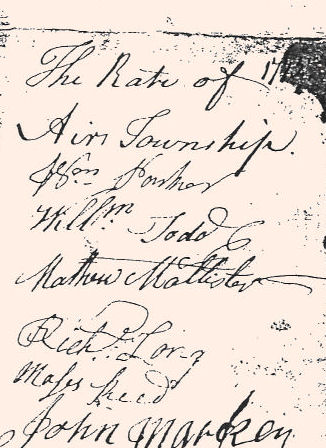 The Rate of 17
Airs Township.
Wm Parker
Willm Todd
Mathew Mallister
Richd. Long
Moses Reed
John